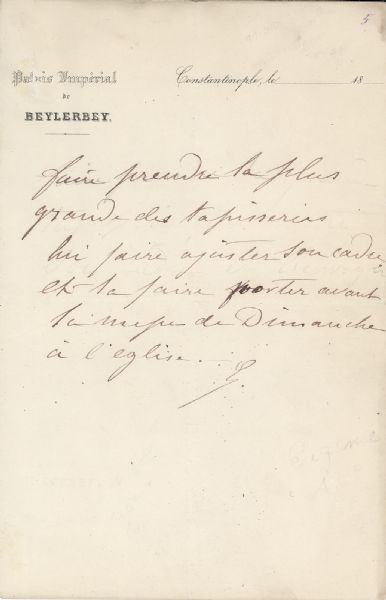 5
Palais Impérial
de
BEYLERBEY.
Constantinople, le 18
faire prendre la plus
grande des tapisseries
lui faire ajuster son cadre
et la faire porter avant
la messe de Dimanche
à l'eglise.